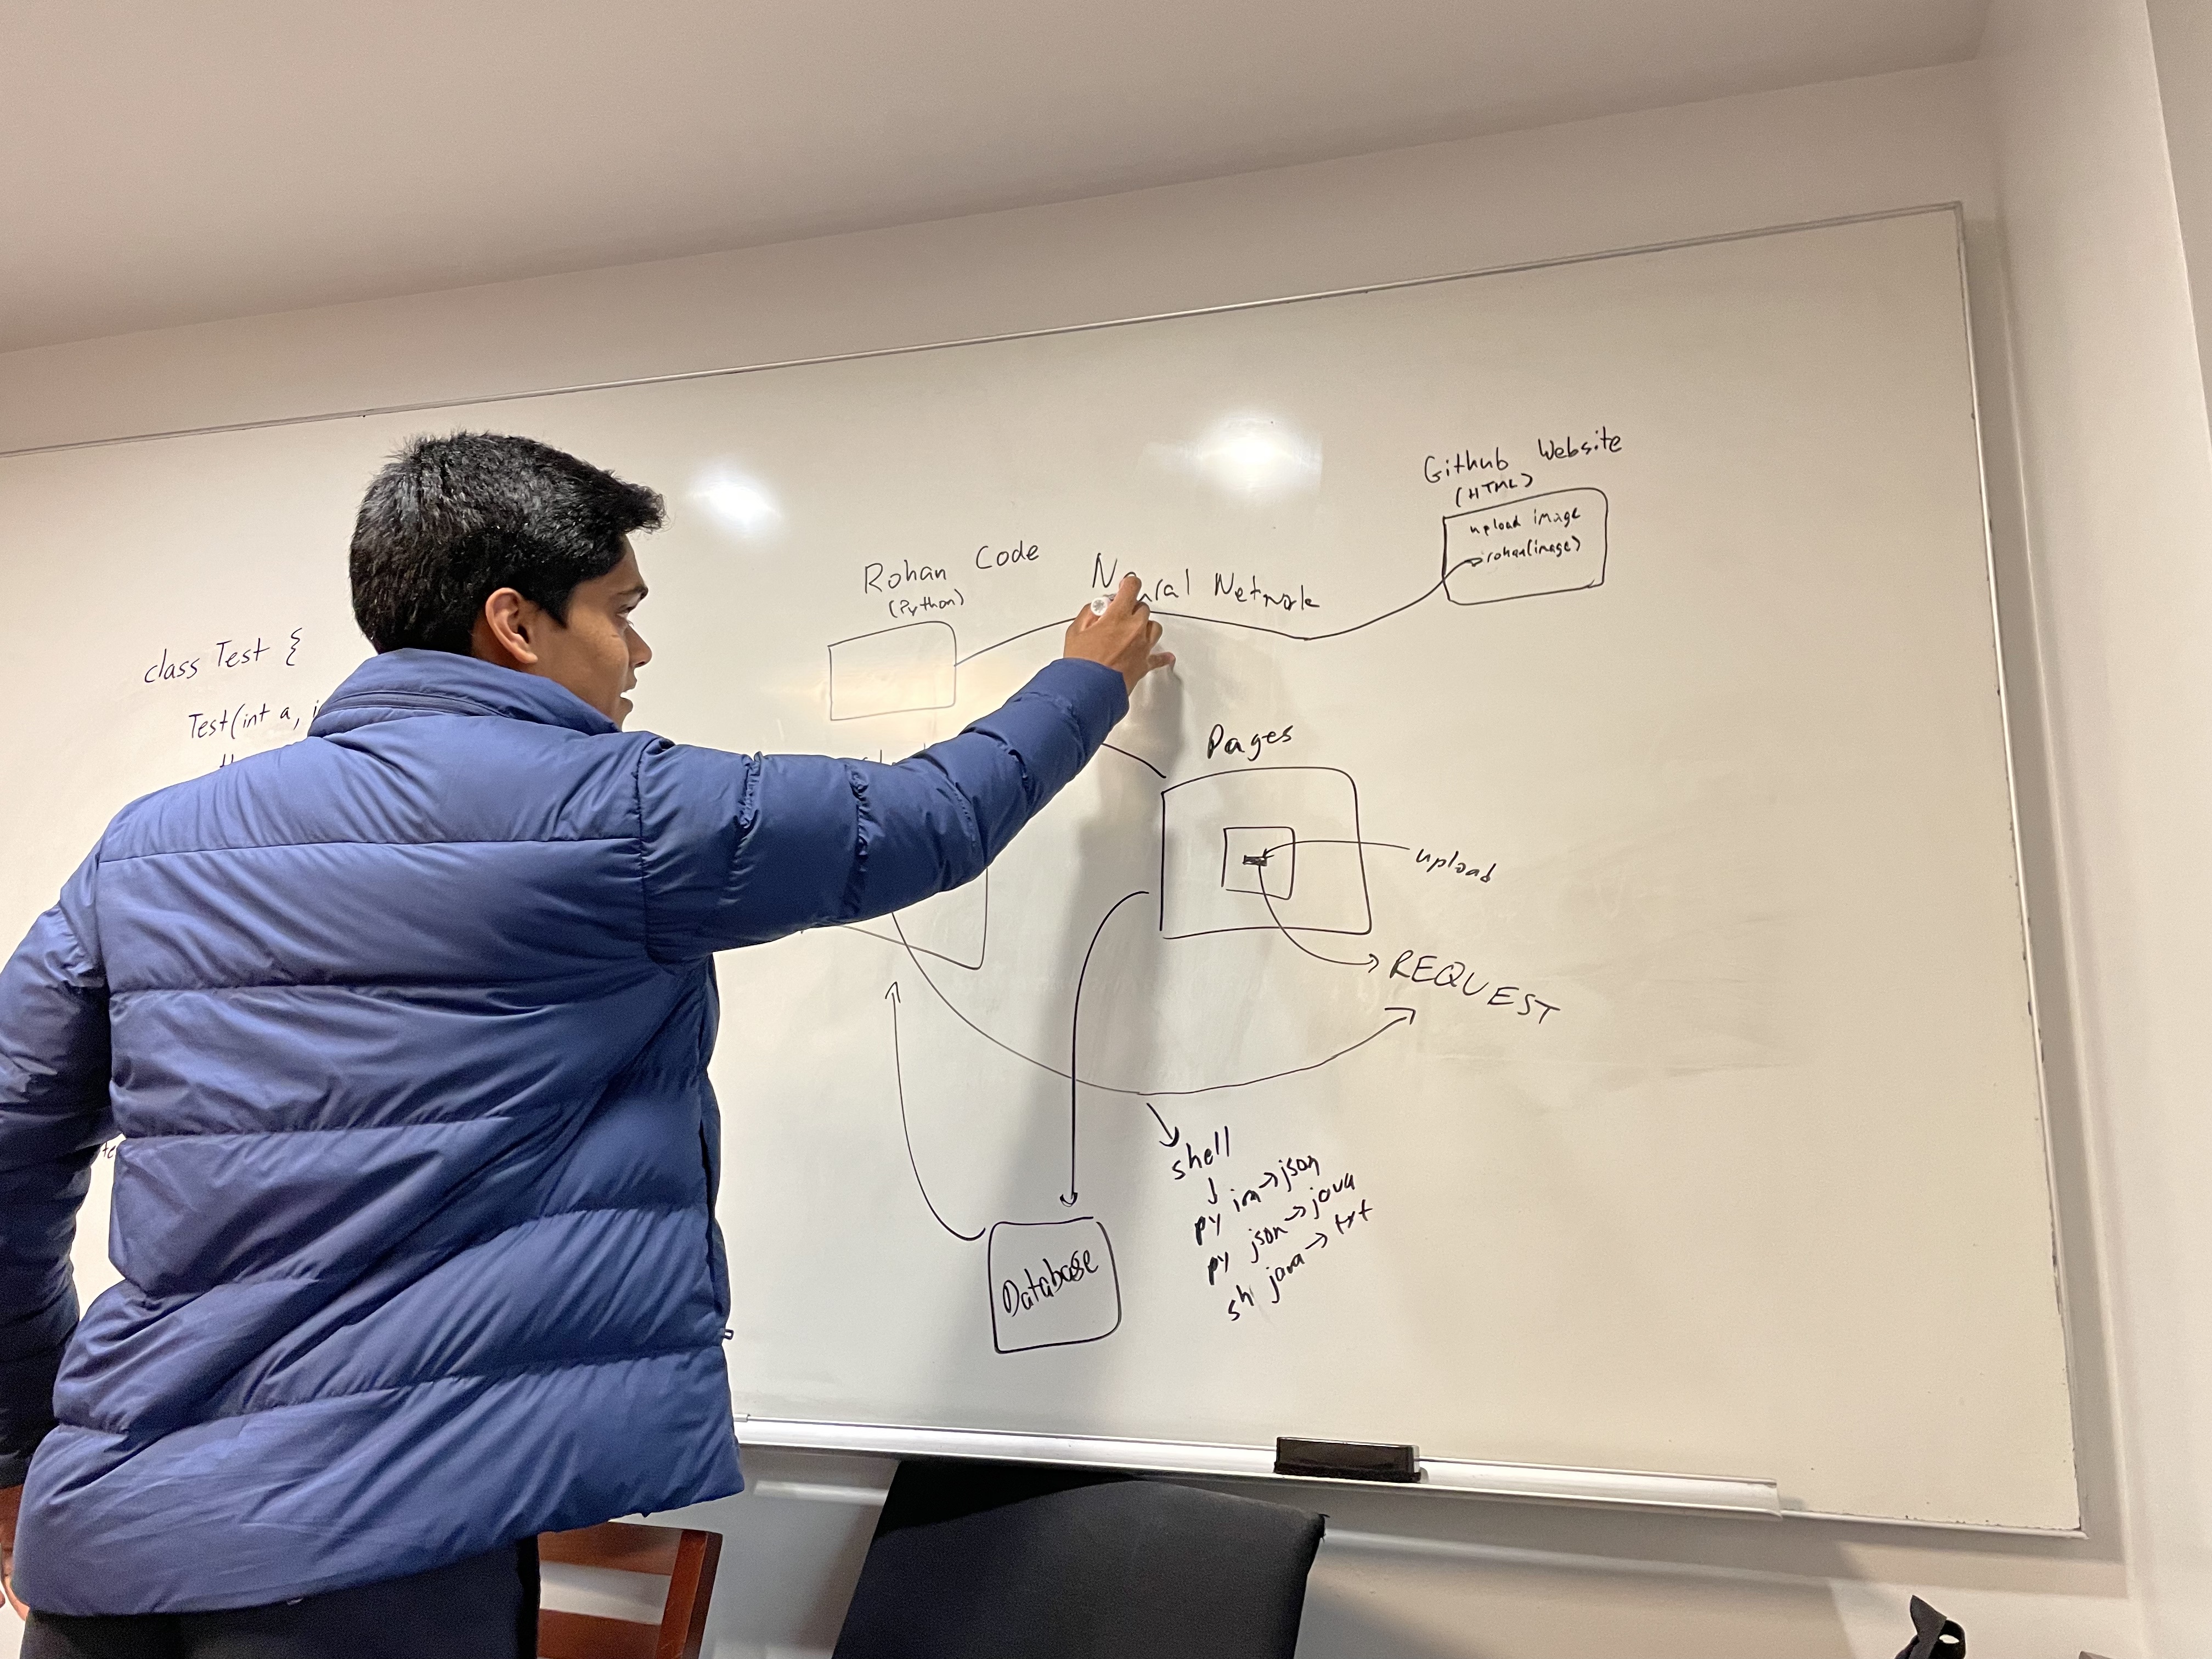 class Test {
Test(int a,
Rohan Code
(Python)
Network
Github Website
(HTML)
upload image
rohan(image)
Pages
upload
REQUEST
shell
py im→json
py json→java
sh java→txt
Database